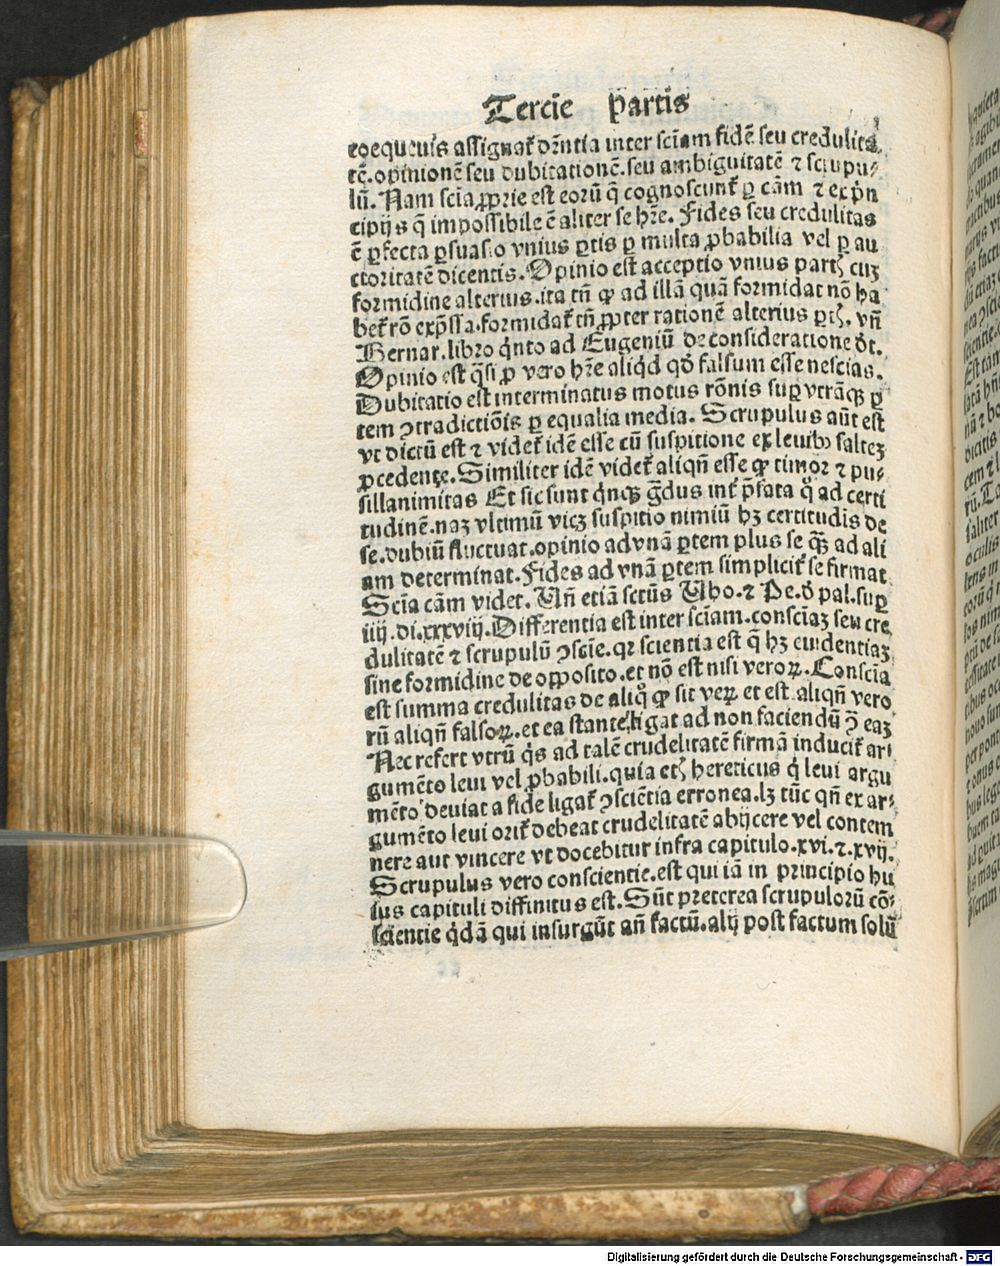 Tercie partis
eoequeuis assignat᷑ dr̄ntia inter sciam fidē seu credulita
tē.opinionē seu dubitationē.seu ambiguitatē ⁊ scrupu⸗
lū. Nam scīa ꝓprie est eorū q̄ cognoscunt᷑ ꝑ cām ⁊ ex p̄n
cipijs q̄ impossibile ē aliter se hr̄e. Fides seu credulitas
ē ꝑfecta ꝑsuasio vnius ꝑtis ꝑ multa ꝓbabilia vel ꝑ au
ctoritatē dicentis. Opinio est acceptio vnius partꝭ cuꝫ
formidine alterius.ita tn̄ ꝙ ad illā quā formidat nō ha
bet᷑ rō exp̄ssa.formidat᷑ tn̄ ꝓpter rationē alterius ꝑtꝭ. vn̄
Bernar.libro q̄nto ad Eugeniū de consideratione d̄t.
Opinio est q̄si ꝓ vero hr̄e aliqd̄ qd̄ falsum esse nescias.
Dubitatio est interminatus motus rōnis suꝑ vtrāqꝫ ꝑ
tem ꝯtradictiōis ꝑ equalia media. Scrupulus aūt est
vt dictū est ⁊ videt᷑ idē esse cū suspitione ex leuibꝰ salteꝫ
ꝓcedente. Similiter idē videt᷑ aliqn̄ esse ꝙ timor ⁊ pu⸗
sillanimitas Et sic sunt q̄nqꝫ ḡdus int᷑ p̄fata q̊ ad certi
tudinē.naꝫ vltimū vicꝫ suspitio nimiū hꝫ certitudīs de
se.dubiū fluctuat.opinio ad vnā ꝑtem plus se qꝫ̄ ad ali
am determinat. Fides ad vnā ꝑtem simplicit᷑ se firmat
Scīa cām videt. Vn̄ etiā sctūs Tho.⁊ Pe.d̄ pal.suꝑ
iiij.di.xxxviij. Differentia est inter sciam.consciaꝫ seu cre
dulitatē ⁊ scrupulū ꝯscie.qꝛ scientia est q̄ hꝫ euidentiaꝫ
sine formidine de opposito.et nō est nisi veroꝝ. Conscīa
est summa credulitas de aliq̊ ꝙ sit veꝝ et est aliqn̄ vero
rū aliqn̄ falsoꝝ.et ea stante ligat ad non faciendū ꝯ̄ eaꝫ
Nec refert vtrū q̄s ad talē crudelitatē firmā inducit᷑ ar⸗
gumēto leui vel ꝓbabili.quia etꝭ hereticus q̄ leui argu
mēto deuiat a fide ligat᷑ ꝯsciētia erronea.lꝫ tūc qn̄ ex ar⸗
gumēto leui orit᷑ debeat crudelitatē abijcere vel contem
nere aut vincere vt docebitur infra capitulo.xvi.⁊.xvij.
Scrupulus vero conscientie.est qui iā in principio hu
ius capituli diffinitus est. Sūt preterea scrupulorū cō⸗
scientie q̄dā qui insurgūt an̄ factū.alij post factum solū
Digitalisierung gefördert durch die Deutsche Forschungsgemeinschaft - DFG